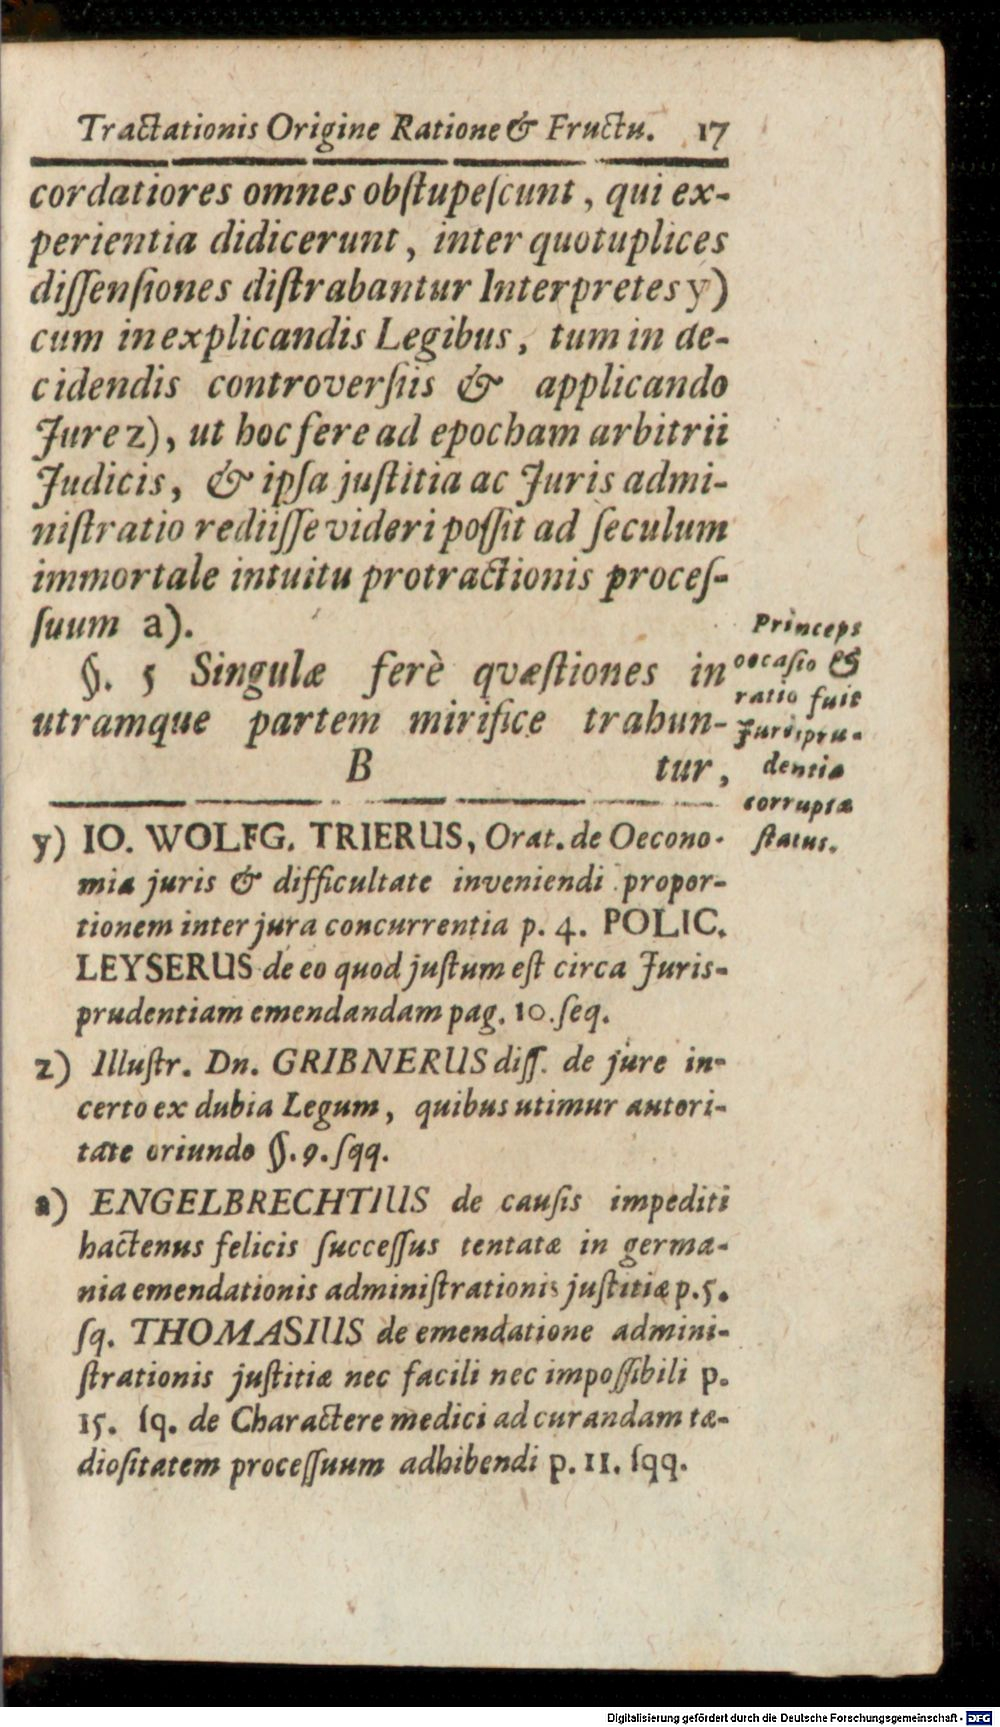 Tractationis Origine Ratione & Fructu. 17
cordatiores omnes obſtupeſcunt, qui ex-
perientia didicerunt, inter quotuplices
diſſenſiones diſtrahantur Interpretes y)
cum in explicandis Legibus, tum in de-
cidendis controverſiis & applicando
Jure z), ut hoc fere ad epocham arbitrii
Judicis, & ipſa juſtitia ac Juris admi-
niſtratio rediiſſe videri poſſit ad ſeculum
immortale intuitu protractionis proceſ-
ſuum a).
§. 5 Singulæ ferè quæſtiones in
utramque partem mirifice trahun-
B tur,
Princeps
occaſio &
ratio fuit
Jurispru-
dentiæ
corruptæ
ſtatus.
y) IO. WOLFG. TRIERUS, Orat. de Oecono-
mia juris & difficultate inveniendi propor-
tionem inter jura concurrentia p. 4. POLIC.
LEYSERUS de eo quod juſtum eſt circa Juris-
prudentiam emendandam pag. 10. ſeq.
z) Illuſtr. Dn. GRIBNERUS diſſ. de jure in-
certo ex dubia Legum, quibus utimur autori-
tate oriundo §. 9. ſqq.
a) ENGELBRECHTIUS de cauſis impediti
hactenus felicis ſucceſſus tentatæ in germa-
nia emendationis adminiſtrationis juſtitiæ p. 5.
ſq. THOMASIUS de emendatione admini-
ſtrationis juſtitiæ nec facili nec impoſſibili p.
15. ſq. de Charactere medici ad curandam tæ-
dioſitatem proceſſuum adhibendi p. 11. ſqq.
Digitalisierung gefördert durch die Deutsche Forschungsgemeinschaft - DFG